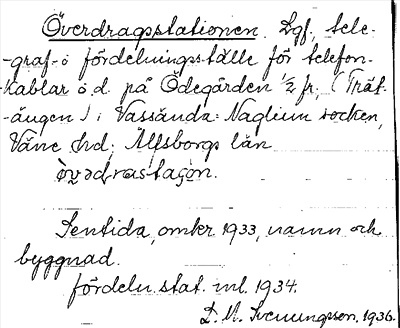 Överdragsstationen. Lgf. tele-
-graf- o fördelningsställe för telefon-
-kablar o.d. på Ödegården 1/2 fr. (Trät-
-ängen) i Vassända-Naglum socken,
Väne hd; Älfsborgs län
övədrastaʃon.
Sentida, omkr 1933, namn och
byggnad.
fördeln. stat. inl. 1934.
D. A. Svenningsson. 1936.